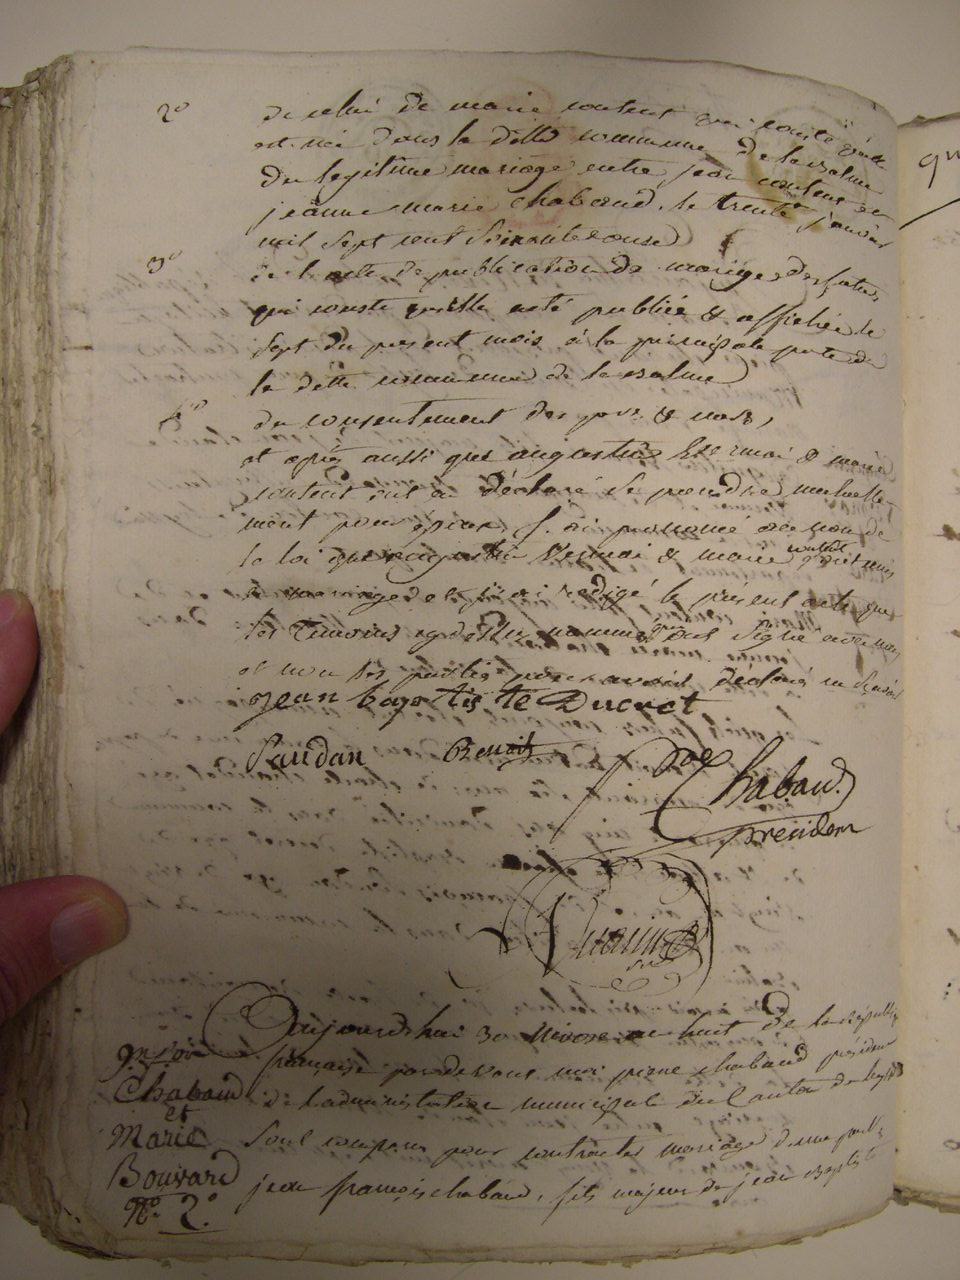 2°
de celui de marie coutent qui conste qu'elle
est née dans la ditte commune de la Balme
du legitime mariage entre jean coutent et
jeanne marie chaboud, le trente janvier
mil sept cent soixante onze
3°
de l'acte de publication de mariage des futurs
qui conste qu'elle a été publiée & affichée le
sept du present mois à la principale porte de
la ditte commune de la Balme
4°
du consentement des pere & mere,
et après aussi que augustin & marie
coutent ont a déclaré se prendre mutuelle
ment pour époux, j'ai prononcé au nom de
la loi que augustin & marie coutent sont unis
en mariage et j'ai redigé le présent acte que
les temoins cy dessus nommés ont signé avec moi
et non les parties pour avoir déclaré
jean baptiste Ducret
Paudan Benoit
Chabaud.
President
Aujourd'hui 30 Nivose an huit de la République
française par devant moi pierre chabaud président
de l'administration municipale du Canton de
sont comparus pour contracter mariage d'une part
jean françois chabaud, fils majeur de jean Baptiste
Chabaud
et
Marie
Bouvard
N°. 2.